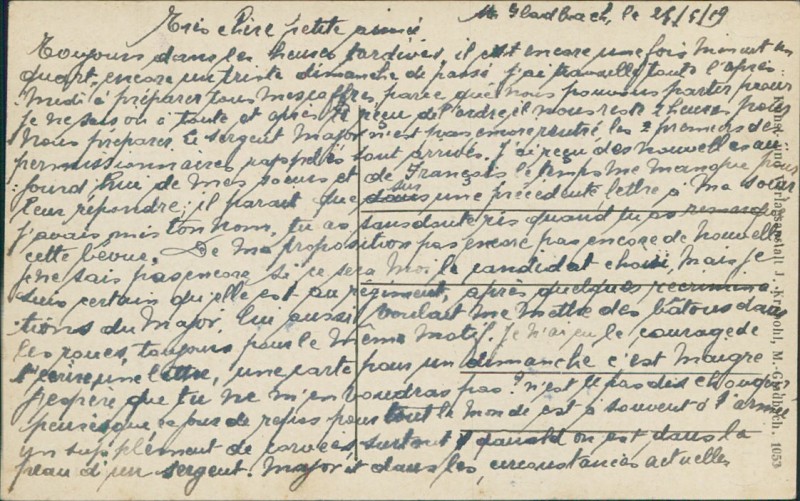 M. Gladbach, le 25/5/19
Très chère petite aimée
Toujours dans les heures tardives, il est encore une fois minuit un
quart, encore un triste dimanche de passé, j'ai travaillé toute l'après
midi à préparer tous mes affres, parce que nous pouvons partir pour
je ne sais où à toute et après le reçu de l'ordre, il nous reste 2 heures pour
nous préparer. Le sergent Major n'est pas encore rentré les 2 premiers des
permissionnaires rapondrés sont arrivés. J'ai reçu des nouvelles au
jourd'hui de mes soeurs et de François le temps me manque pour
leur répondre; il parait que sur une précédente lettre à ma soeur
j'avais mis ton nom, tu as sans doute ris quand tu as remarqué
cette bévue. De ma proposition pas encore pas encore de nouvelle
je ne sais pas encore si ce sera moi le candidat choisi, mais je
suis certain qu'elle est au régiment, après quelques récrimina
tions du Major, lui aussi voulant me mettre des bâtons dans
les roues, toujours pour le même motif. Je n'ai eu le courage de
t'écrire une lettre, une carte pour un dimanche c'est maigre
j'espère que tu ne m'en voudras pas? n'est ce pas dis chouquis
puisque ce jour de repos pour tout le monde est souvent à l'armée
un supplément de corvées, surtout quand on est dans la
peau d'un sergent. Major et dans les circonstances actuelles
Kunst- und Verlagsanstalt J. Krapohl, M.-Gladbach. 1053